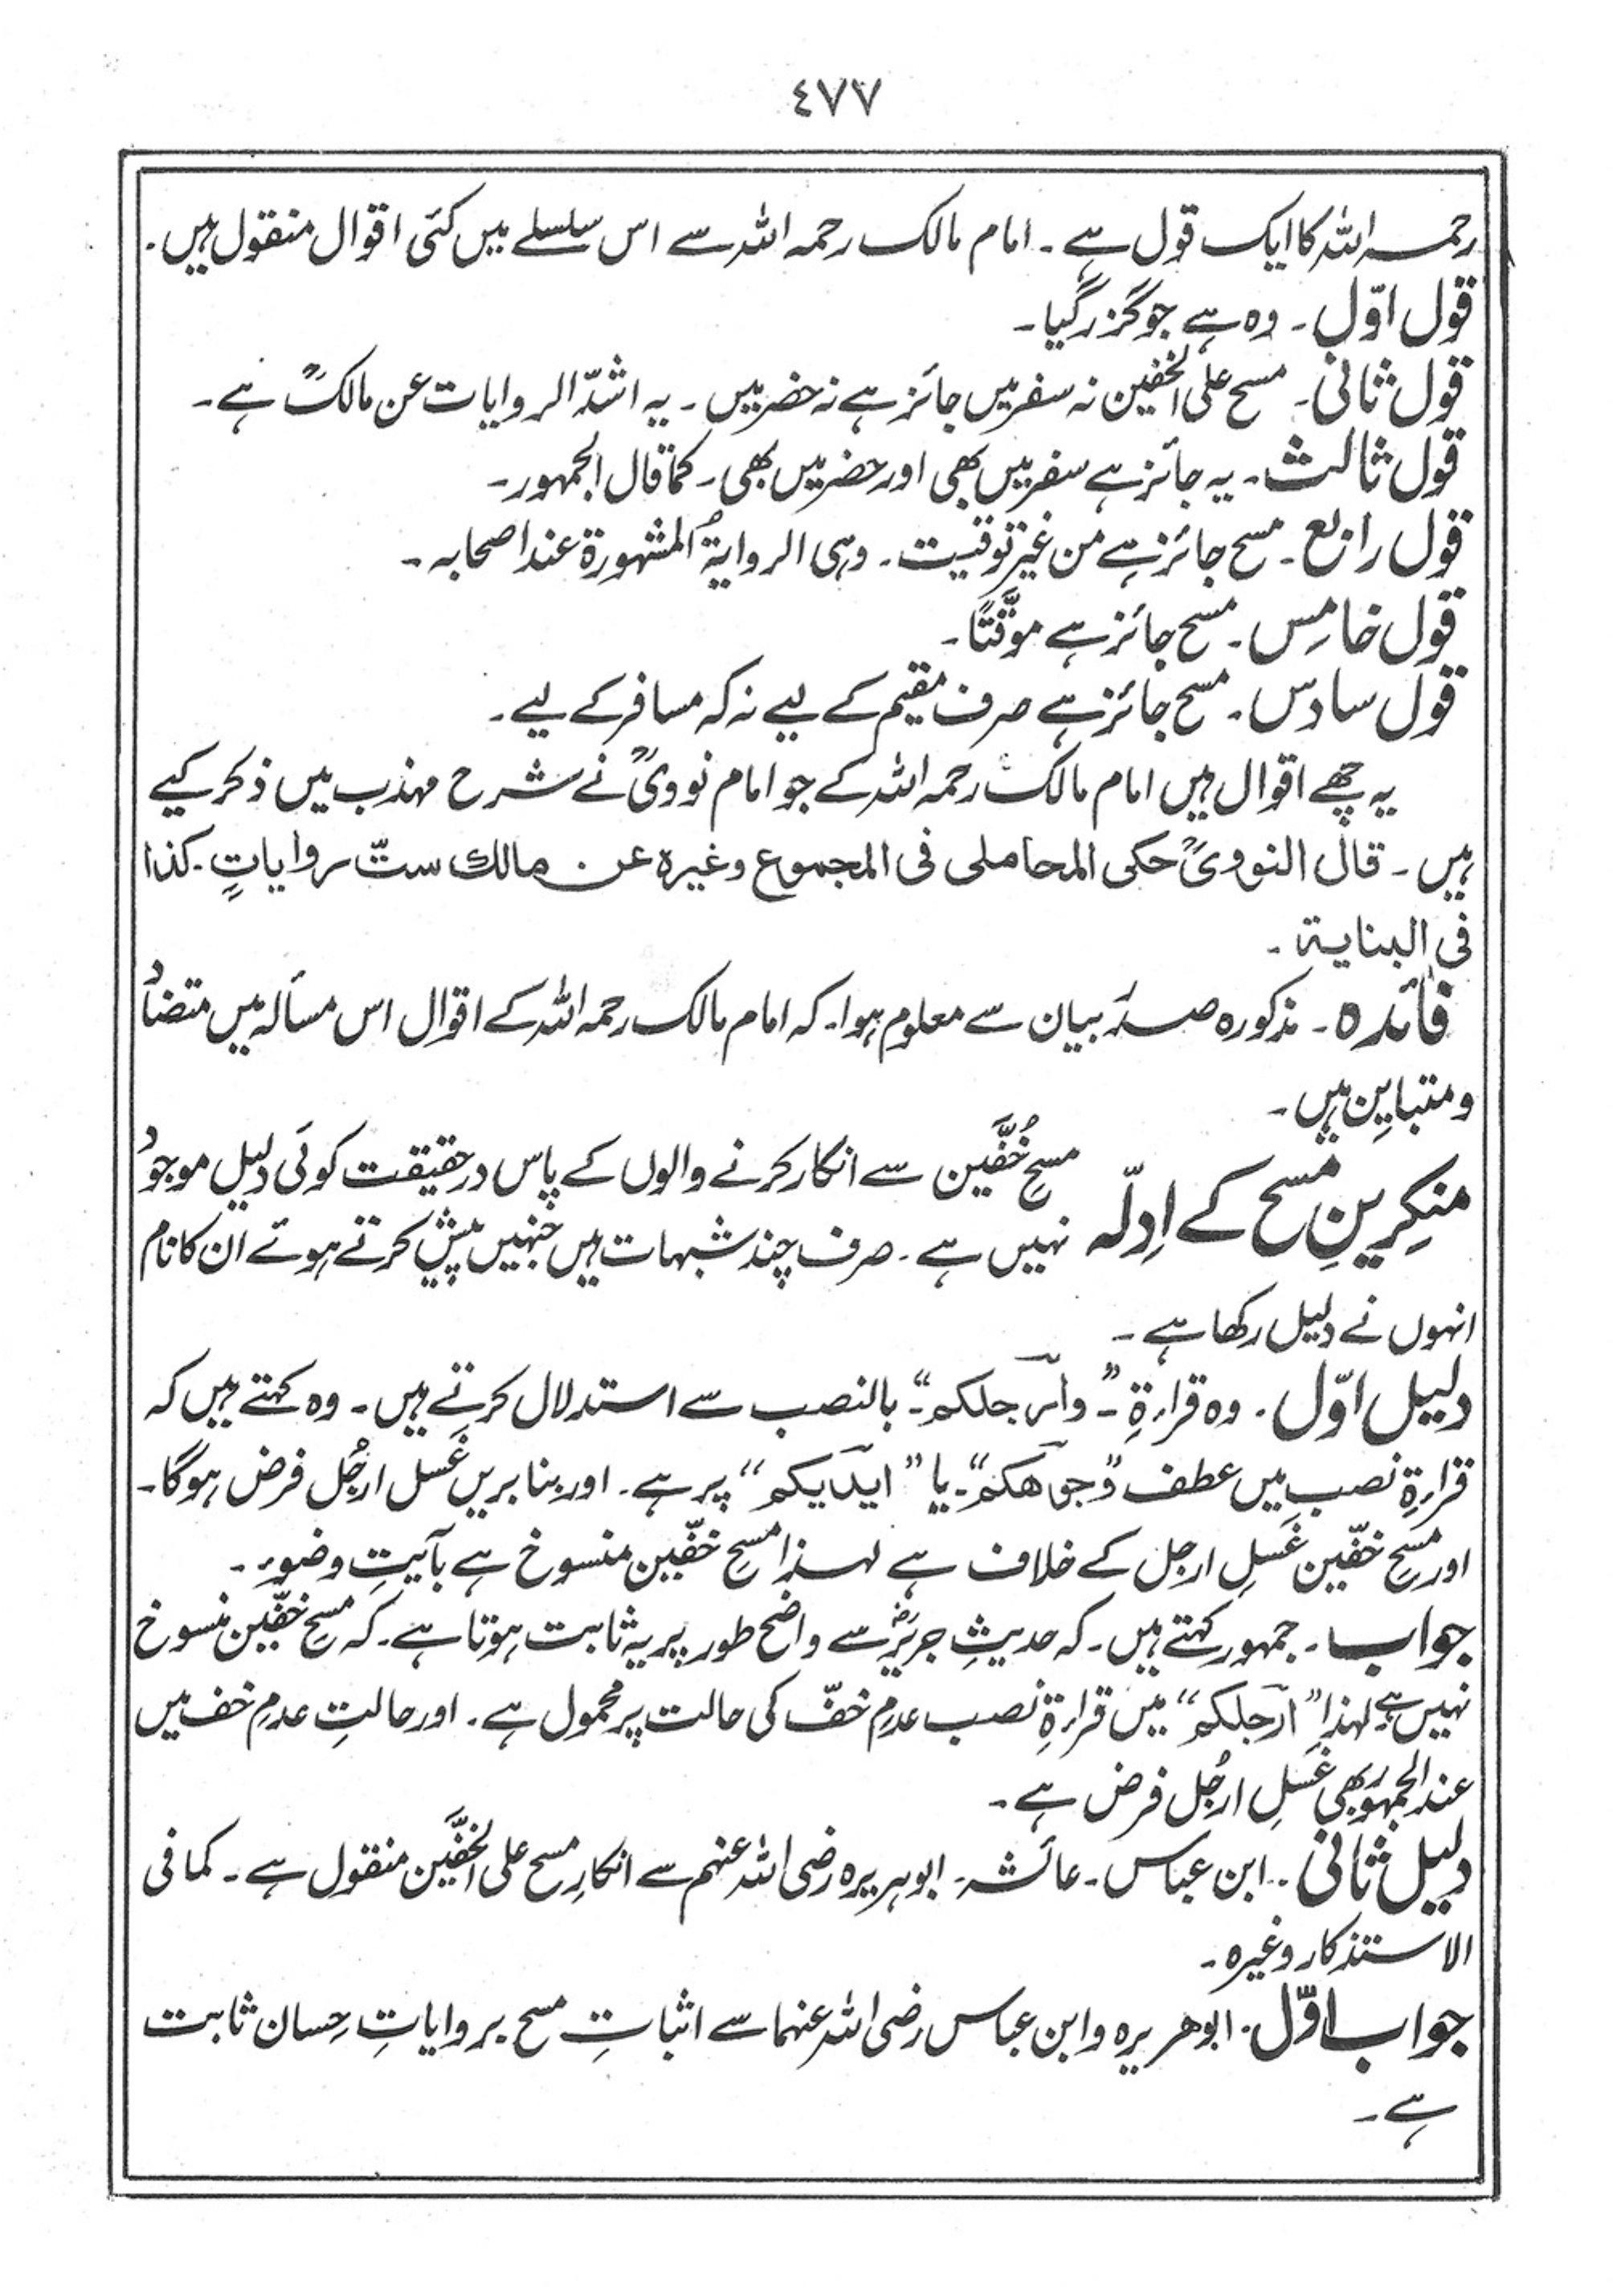 ٤٧٧
رحمہ اللہ کا ایک قول ہے ۔ امام مالک رحمہ اللہ سے اس سلسلے میں کئی اقوال منقول ہیں ۔
قول اوّل ۔ وہ ہے جو گزر گیا ۔
قول ثانی ۔ مسح علی الخفین نہ سفر میں جائز ہے نہ حضر میں ۔ یہ اشدّ الروایات عن مالکؒ ہے ۔
قول ثالث ۔ یہ جائز ہے سفر میں بھی اور حضر میں بھی ۔ کما قال الجمہور ۔
قول رابع ۔ مسح جائز ہے من غیر توقیت ۔ وہی الروایۃُ المشہورۃ عند اصحابہ ۔
قول خامِس ۔ مسح جائز ہے موقَّتًا ۔
قول سادس ۔ مسح جائز ہے صرف مقیم کے لیے نہ کہ مسافر کے لیے ۔
یہ چھے اقوال ہیں امام مالک رحمہ اللہ کے جو امام نوویؒ نے شرح مہذب میں ذکر کیے
ہیں ۔ قال النوویؒ حکی المحاملی فی المجموع وغیرہ عن مالك ستّ روایاتٍ ۔ کذا
فی البنایۃ ۔
فائدہ ۔ مذکورہ صدر بیان سے معلوم ہوا ۔ کہ امام مالک رحمہ اللہ کے اقوال اس مسألہ میں متضاد
و متباین ہیں ۔
منکِرینِ مسح کے اِدلّہ
مسحِ خُفَّین سے انکار کرنے والوں کے پاس درحقیقت کوئی دلیل موجود
نہیں ہے ۔ صرف چند شبہات ہیں جنہیں پیش کرتے ہوئے ان کا نام
انہوں نے دلیل رکھا ہے ۔
دلیل اوّل ۔ وہ قراءۃِ ”وأرجلکم“ بالنصب سے استدلال کرتے ہیں ۔ وہ کہتے ہیں کہ
قراءۃِ نصب میں عطف ”وجوھکم“ ۔ یا ”ایدیکم“ پر ہے ۔ اور بنا بریں غَسل ارجُل فرض ہوگا ۔
اور مسحِ خفّین غَسلِ ارجل کے خلاف ہے لہذا مسحِ خفّین منسوخ ہے بآیتِ وضوء ۔
جواب ۔ جمہور کہتے ہیں ۔ کہ حدیثِ جریرؓ سے واضح طور پر یہ ثابت ہوتا ہے ۔ کہ مسحِ خفّین منسوخ
نہیں ہے ۔ لہذا ”ارجلکم“ میں قراءۃِ نصب عدمِ خفّ کی حالت پر محمول ہے ۔ اور حالتِ عدمِ خف میں
عند الجمہور بھی غَسلِ ارجُل فرض ہے ۔
دلیل ثانی ۔ ابن عباس ۔ عائشہ ۔ ابوہریرہ رضی اللہ عنہم سے انکارِ مسح علی الخفَّین منقول ہے ۔ کما فی
الاستذکار وغیرہ ۔
جواب اوّل ۔ ابوھریرہ وابن عباس رضی اللہ عنہما سے اثباتِ مسح بروایاتِ حِسان ثابت
ہے ۔